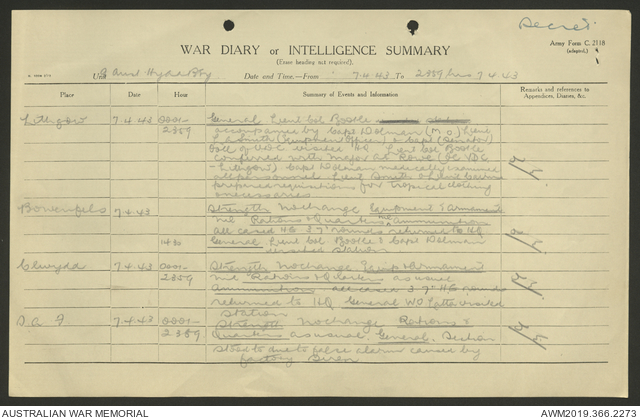 Secret
WAR DIARY or INTELLIGENCE SUMMARY
(Erase heading not required).
Army Form C. 2118
(adapted.)
Unit Aust Hy AA Bty
Date and Time.—From 7.4.43 To 2359 hrs 7.4.43
Place
Date
Hour
Summary of Events and Information
Remarks and references to
Appendices, Diaries, &c.
Lithgow 7.4.43 0001- General Lieut Col Boosle
2359 accompanied by Capt Dolman (M O) Lieut
Smith (equipment officer) & Capt
of VDC visited HQ Lieut Col Boosle
conferred with Major Rowe (OC VDC
Lithgow) Capt Dolman medically examined
all personnel Lieut Smith
prepared requisitions for tropical clothing
necessaries
Bowenfels 7.4.43 Strength No change Equipment & Armament
nil Rations & Quarters Ammunition
all cased HE 3.7" rounds returned to HQ
General Lieut Col Boosle & Capt Dolman
visited station
Clwydd 7.4.43 0001- Strength No change Equip & Armament
2359 nil Rations & Quarters as usual
Ammunition all cased 3.7" HE rounds
returned to HQ General WO visited
station
S.A.F 7.4.43 0001- Strength No change Rations &
2359 Quarters as usual. General. Section
stood to due to false alarm caused by
factory Siren
AUSTRALIAN WAR MEMORIAL
AWM2019.366.2273